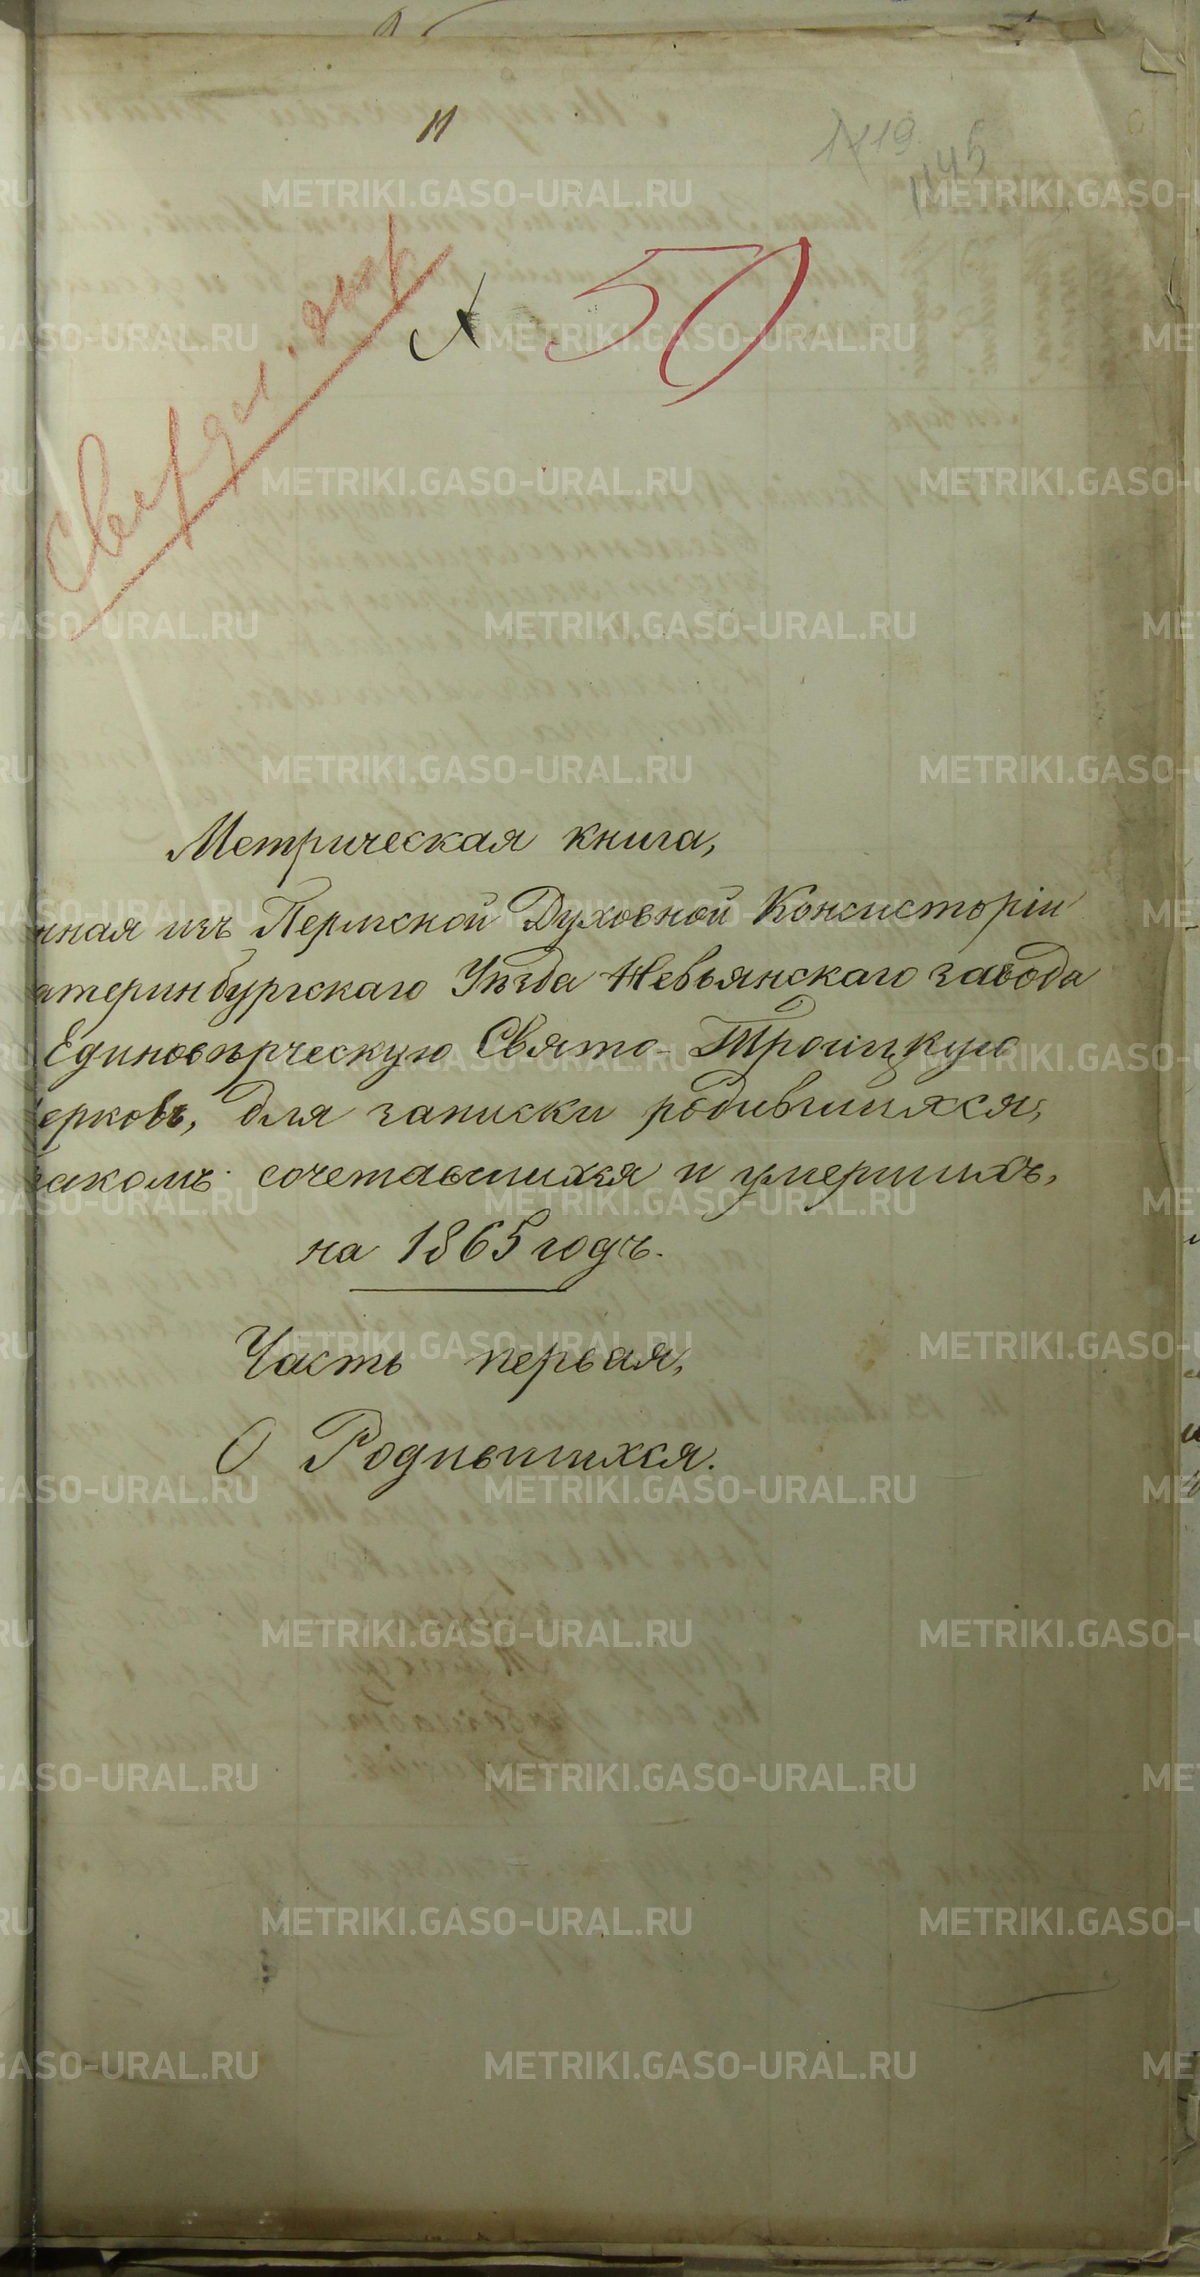 11
1719
1145
Свердл. загс
№ 50
Метрическая книга,
нная изъ Пермской Духовной Консисторіи
атеринбургскаго Уѣзда Невьянскаго завода
Единовѣрческую Свято-Троицкую
ерковь, для записки родившихся,
ракомъ сочетавшихся и умершихъ,
на 1865 годъ.
Часть первая,
О Родившихся.
METRIKI.GASO-URAL.RU